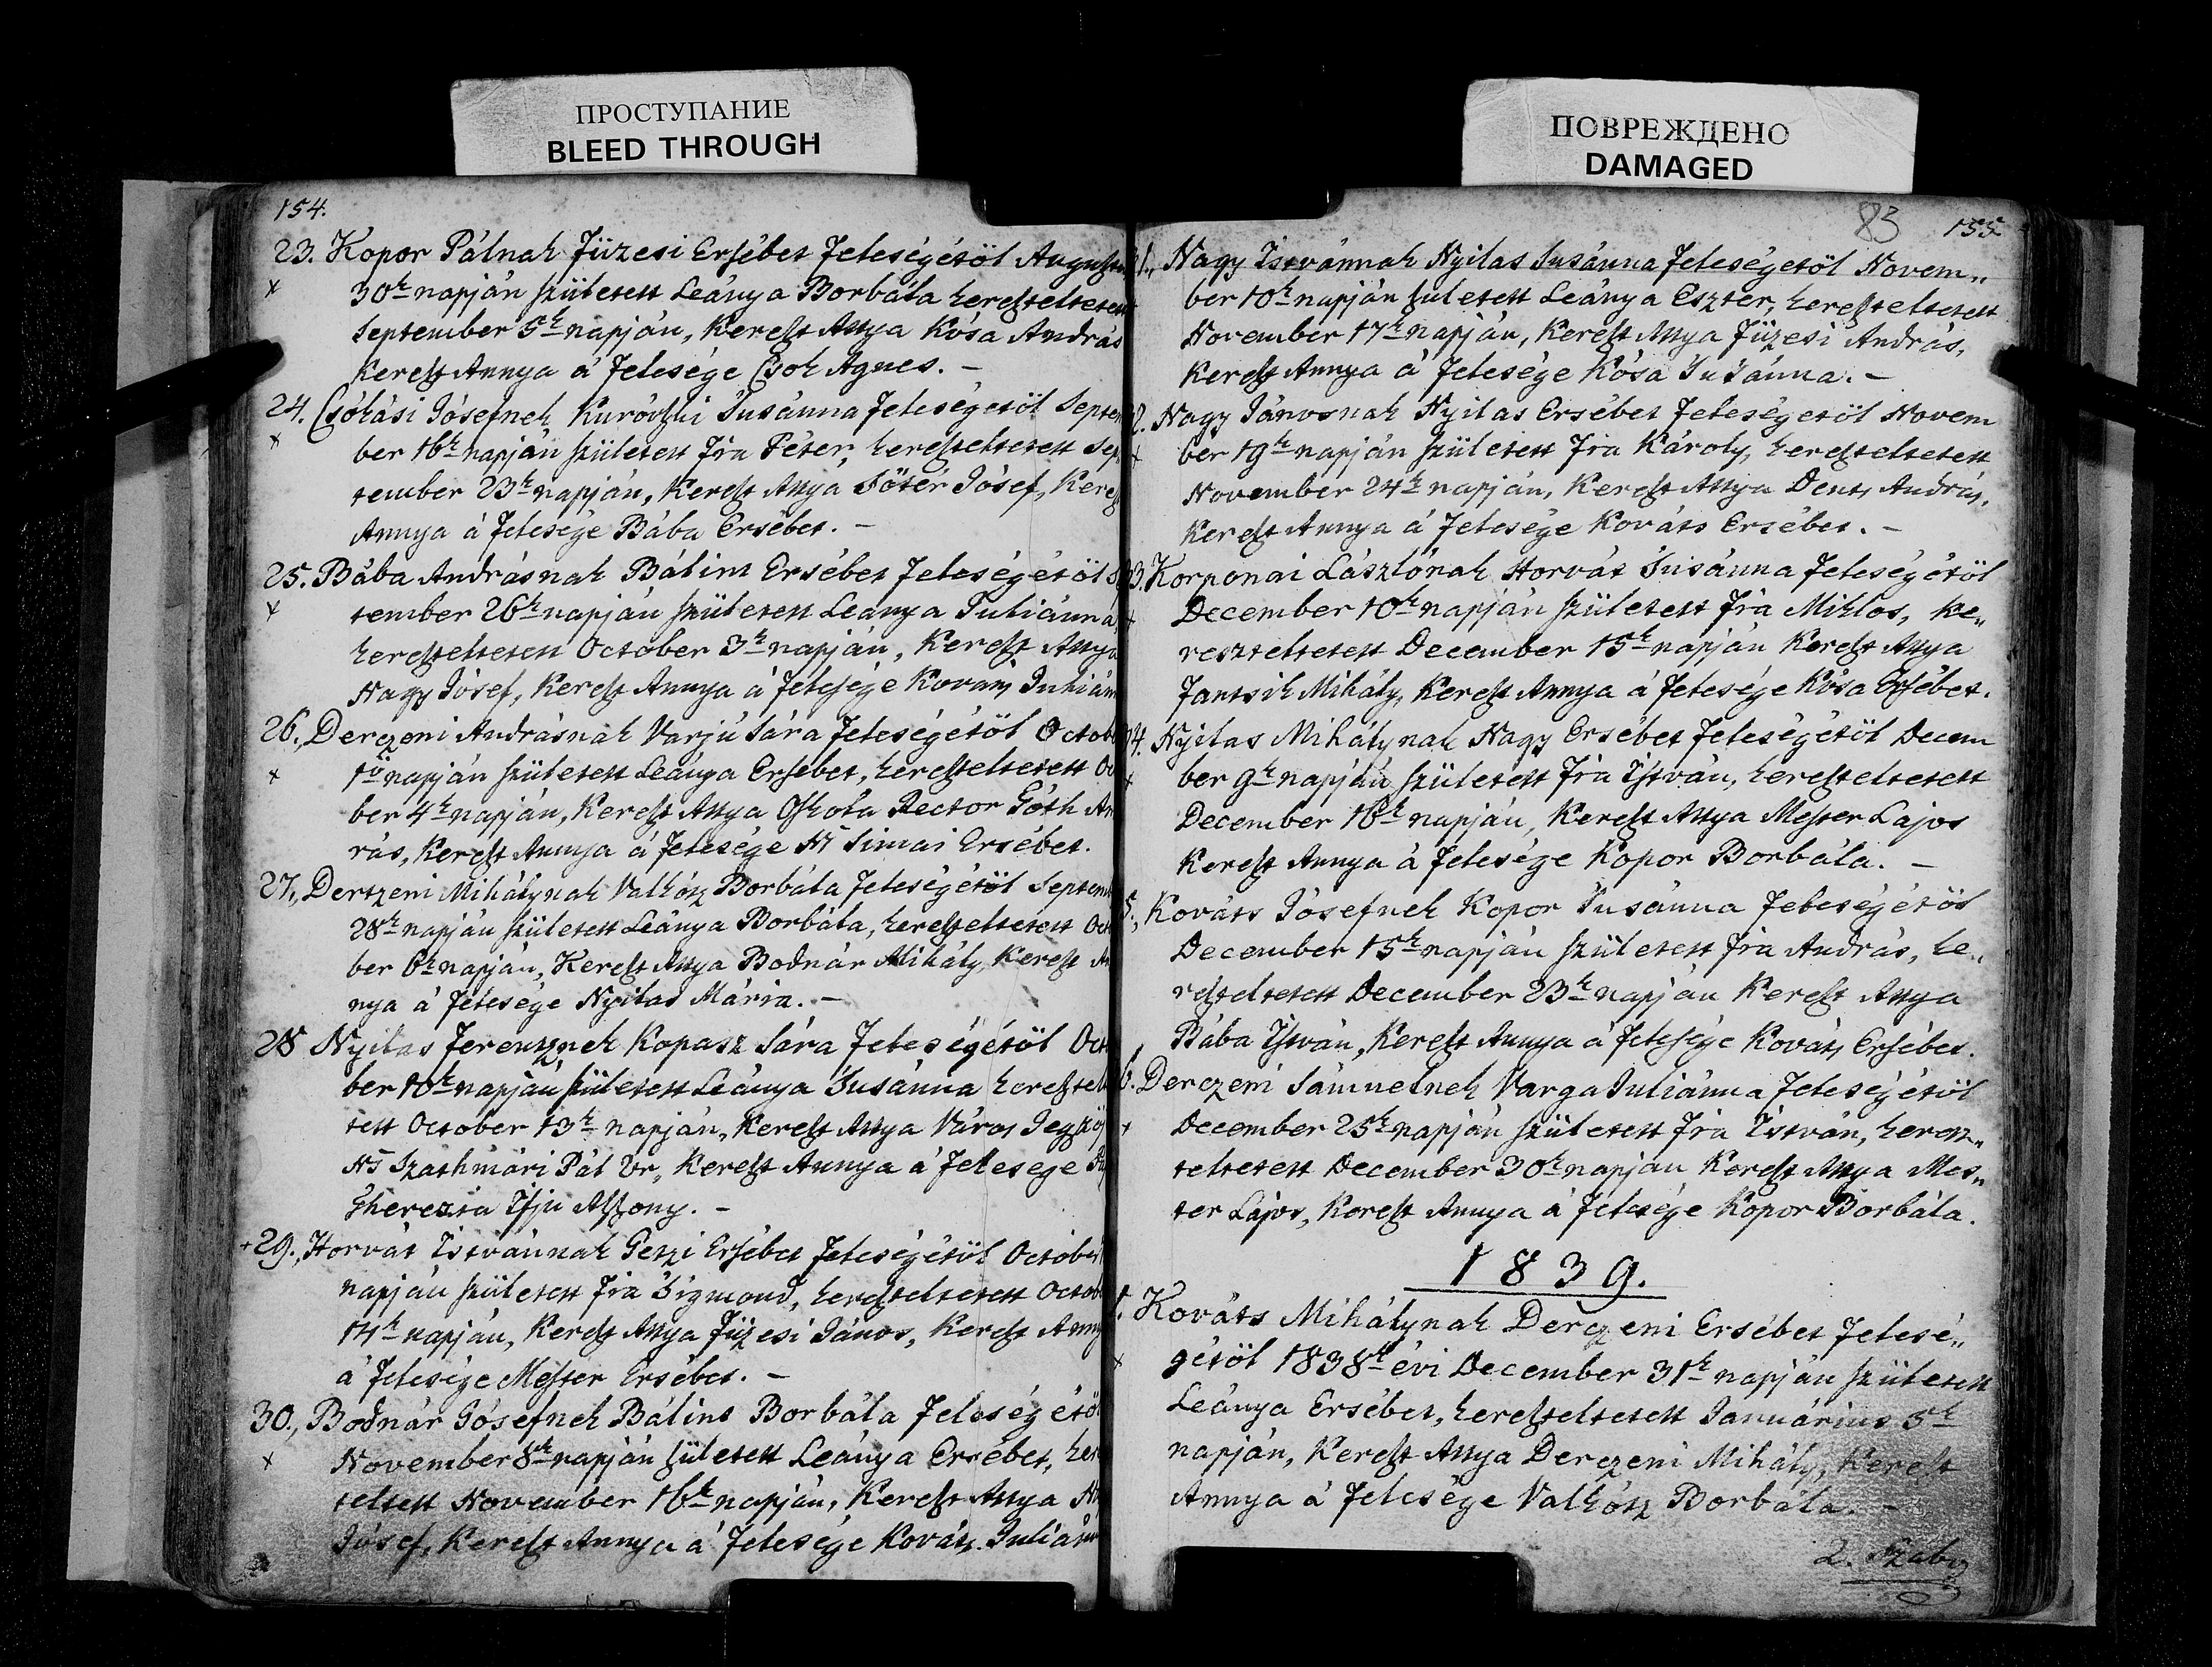 ПРОСТУПАНИЕ
BLEED THROUGH
ПОВРЕЖДЕНО
DAMAGED
154.
23. Kopor Pálnak Füzesi Ersébet feleségétöl August
30k napján született Leánya Borbála kereszteltetett
September 5k napján, Kereszt Attya Kósa András
Kereszt Annya á felesége Csok Agnes. –
24. Csókási Jósefnek Zusánna feleségetöl Septem
ber 16k napján született fia Péter, kereszteltetett Sep
tember 23k napján, Kereszt Attya Sötér Jósef, Kereszt
Annya á felesége Bába Ersébet. –
25. Bába Andrásnak Bálint Ersébet feleségétöl S
tember 26k napján született Leánya Juliánna,
kereszteltetett October 3k napján, Kereszt Attya
Nagy Jósef, Kereszt Annya á felesége Kováts Julián
26., Derczeni Andrásnak Varjú Sára feleségétöl Octob
1ö napján született Leánya Ersébet, kereszteltetett Oc
ber 4k napján, Kereszt Attya Oskola Rector Tóth An
rás, Kereszt Annya á felesége Ns Simai Ersébet.
27., Dertzeni Mihálynak Valkósz Borbála feleségétöl Septem
28k napján született Leánya Borbála, kereszteltetett Oct
ber 6k napján, Kereszt Attya Bodnár Mihály, Kereszt An
nya á felesége Nyilas Mária. –
28 Nyilas Ferentznek Kopasz Sára feleségétöl Oct
ber 10k napján született Leánya Susánna keresztel
tett October 13k napján, Kereszt Attya Város Jegyzöj
Ns Szathmári Pál Ur, Kereszt Annya á felesege
Therezia Ifju Asszony. –
29., Horvát Istvánnak Petzi Ersébet feleségétöl October
napján született fia Sigmond, kereszteltetett Octob
14k napján, Kereszt Attya Füzesi János, Kereszt Anny
á felesége Mester Ersébet. –
30., Bodnár Jósefnek Bálint Borbála feleségétöl
November 8k napján született Leánya Ersébet, ker
teltett November 16k napján, Kereszt Attya
Jósef, Kereszt Annya á felesége Kováts Juliánn
83 155
1., Nagy Istvánnak Nyilas Susánna feleségetöl Novem„
ber 10k napján született Leánya Eszter, kereszteltetett
November 17k napján, Kereszt Attya Füzesi András,
Kereszt Annya á felesége Kósa Susánna. –
2. Nagy Jánosnak Nyilas Ersébet feleségetöl Novem
ber 19k napján született fia Károly, kereszteltetett
November 24k napján, Kereszt Attya Dents András,
Kereszt Annya á felesége Kováts Ersébet. –
3. Korponai Lászlónak Horvát Susánna feleségétöl
December 10k napján született fia Miklos, Ke„
reszteltetett December 15k napján Kereszt Attya
Jantsik Mihály, Kereszt Annya á felesége Kósa Ersébet.
4. Nyilas Mihálynak Nagy Ersébet feleségétöl Decem
ber 9k napján született fia István, kereszteltetett
December 16k napján, Kereszt Attya Mester Lajos
Kereszt Annya á felesége Kopor Borbála. –
5., Kováts Jósefnek Kopor Susánna feleségétöl
December 15k napján született fia András, ke„
reszteltetett December 23k napján Kereszt Attya
Bába István, Kereszt Annya á felesége Kováts Ersébet.
6. Derczeni Sámuelnek Varga Juliánna feleségétöl
December 25k napján született fia István, keresz„
teltetett December 30k napján Kereszt Attya Mes„
ter Lajos, Kereszt Annya á felesége Kopor Borbála.
1839.
1. Kováts Mihálynak Derczeni Ersébet felesé„
gétöl 1838k évi December 31k napján született
Leánya Ersébet, kereszteltetett Januárius 5k
napján, Kereszt Attya Derczeni Mihály, Kereszt
Annya á felesége Valkósz Borbála. –
2. Szabó